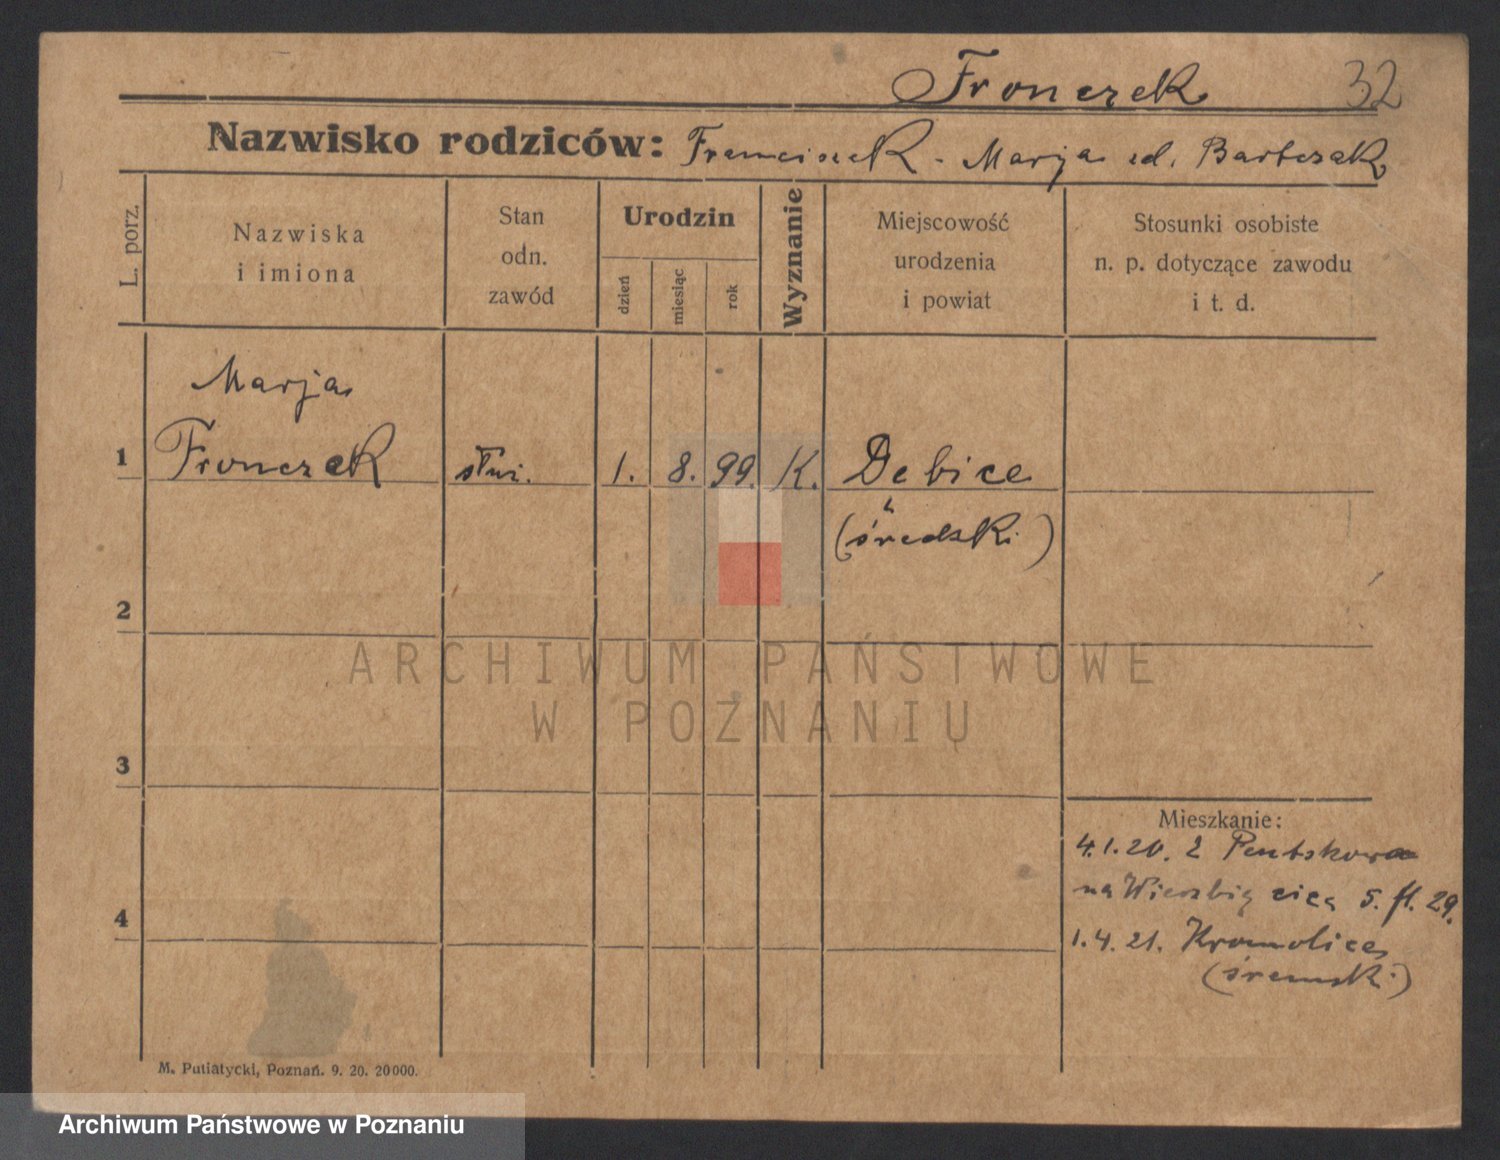 Fronczek 32
Nazwisko rodziców: Franciszek - Marja zd. Bartczak
L. porz.
Nazwiska
i imiona
Stan
odn.
zawód
Urodzin
dzień
miesiąc
rok
Wyznanie
Miejscowość
urodzenia
i powiat
Stosunki osobiste
n. p. dotyczące zawodu
i t. d.
Marja
1 Fronczek służ. 1. 8. 99. K. Debice
(średzki)
2
3
4
Mieszkanie:
4.1.20. z
na 5. fl. 29.
1.4.21. Kromolice
(śremski)
M. Putiatycki, Poznań. 9. 20. 20000.
ARCHIWUM PAŃSTWOWE
W POZNANIU
Archiwum Państwowe w Poznaniu